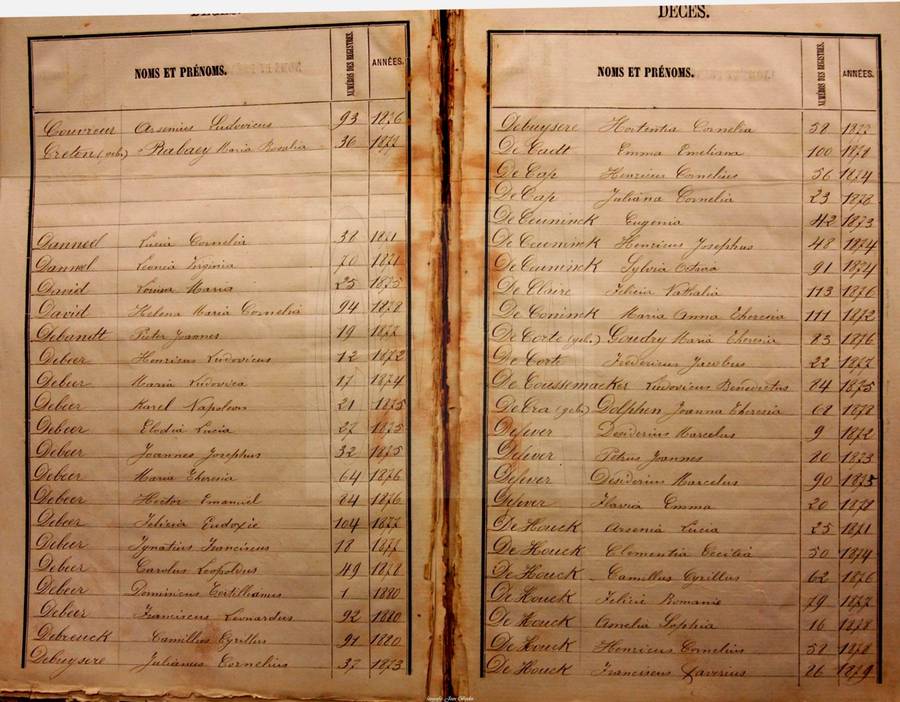 DÉCÈS.
NOMS ET PRÉNOMS. NUMÉROS DES REGISTRES. ANNÉES.
Couvreur Arsenius Ludovicus 93 1876
Creton Rabaey Maria Rosalia 36 1877
Danneel Lucia Cornelia 38 1871
Danneel Leonia Virginia 70 1871
David Louisa Maria 25 1875
David Helena Maria Cornelia 94 1878
Debandt Pieter Joannes 19 1877
Debeer Henricus Ludovicus 12 1872
Debeer Maria Ludovica 17 1874
Debeer Karel Napoleon 21 1875
Debeer Elodia Lucia 27 1875
Debeer Joannes Josephus 32 1875
Debeer Maria Theresia 64 1876
Debeer Hector Emanuel 84 1876
Debeer Eudoxie 104 1877
Debeer Ignatius Franciscus 18 1877
Debeer Carolus Leopoldus 49 1878
Debeer Dominicus Tertillianus 1 1880
Debeer Franciscus Leonardus 92 1880
Debreuck Camillus Cyrillus 91 1880
Debuysere Julianus Cornelius 37 1873
DÉCÈS.
NOMS ET PRÉNOMS. NUMÉROS DES REGISTRES. ANNÉES.
Debuysere Hortentia Cornelia 58
Emma Emeliana 100 1878
De Cap Henricus Cornelius 56 1874
De Cap Juliana Cornelia 23 1878
De Ceuninck Eugenia 42 1873
De Ceuninck Henricus Josephus 48 1874
De Ceuninck Sylvia 91 1874
De Claire Felicia Nathalia 113 1876
De Coninck Maria Anna Theresia 111 1872
De Corte (geb.) Goudry Maria Theresia 83 1876
De Corte Fredericus Jacobus 22 1877
De Coussemaeker Ludovicus Benedictus 84 1875
De Cra (geb.) Dolphen Joanna Theresia 68 1878
Defever Desiderius Marcelus 9 1872
Defever Petrus Joannes 80 1873
Defever Desiderius Marcelus 90 1875
Defever Flavia Emma 20 1878
De Houck Arsenia Lucia 25 1871
De Houck Clementia Cecilia 50 1874
De Houck Camillus Cyrillus 62 1876
De Houck Felicie Romanie 79 1877
De Houck Sophia 16 1878
De Houck Henricus Cornelius 58 1878
De Houck Franciscus Xaverius 26 1879